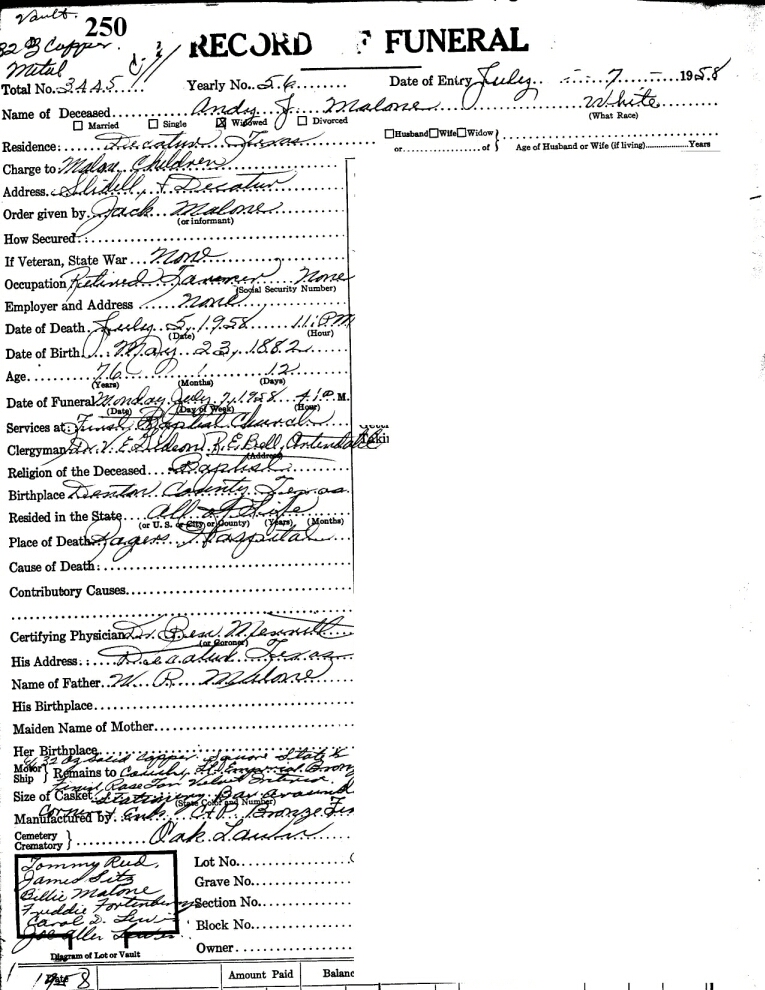 Vault. 250
32 oz Copper
Metal
RECORD OF FUNERAL
Total No. 3445 Yearly No. 56 Date of Entry July 7 1958
Name of Deceased Andy J. Malone White
☐ Married ☐ Single ☒ Widowed ☐ Divorced (What Race)
Residence: Decatur Texas ☐Husband☐Wife☐Widow
or of Age of Husband or Wife (if living) Years
Charge to Malone Children
Address Slidell, & Decatur
Order given by Jack Malone
(or informant)
How Secured:
If Veteran, State War None
Occupation Retired Farmer None
(Social Security Number)
Employer and Address None
Date of Death July 5, 1958 11: PM
(Date) (Hour)
Date of Birth May 23, 1882
Age 76 1 12
(Years) (Months) (Days)
Date of Funeral Monday July 7, 1958 4: P M.
(Date) (Day of Week) (Hour)
Services at First Baptist Church
Clergyman Dr. V. E. Gideon R. E. Bell,
(Address)
Religion of the Deceased Baptist
Birthplace Denton County Texas
Resided in the State All of Life
(or U. S. or City or County) (Years), (Months)
Place of Death Rogers Hospital
Cause of Death:
Contributory Causes
Certifying Physician Dr. Ben Merritt
(or Coroner)
His Address: Decatur Texas
Name of Father W. R. Malone
His Birthplace
Maiden Name of Mother
Her Birthplace
32 oz Solid Copper Square
Motor
Ship } Remains to
Finish Rose Tan Velvet Interior
Size of Casket Bar around
(State Color and Number)
Manufactured by Bronze
Cemetery
Crematory } Oak Lawn
Tommy Reed,
James Sitz
Billie Malone
Freddie Fortenberry
Carol D. Lewis
Joe Allen Lewis
Diagram of Lot or Vault
Lot No.
Grave No.
Section No.
Block No.
Owner
Date Amount Paid Balanc
1958